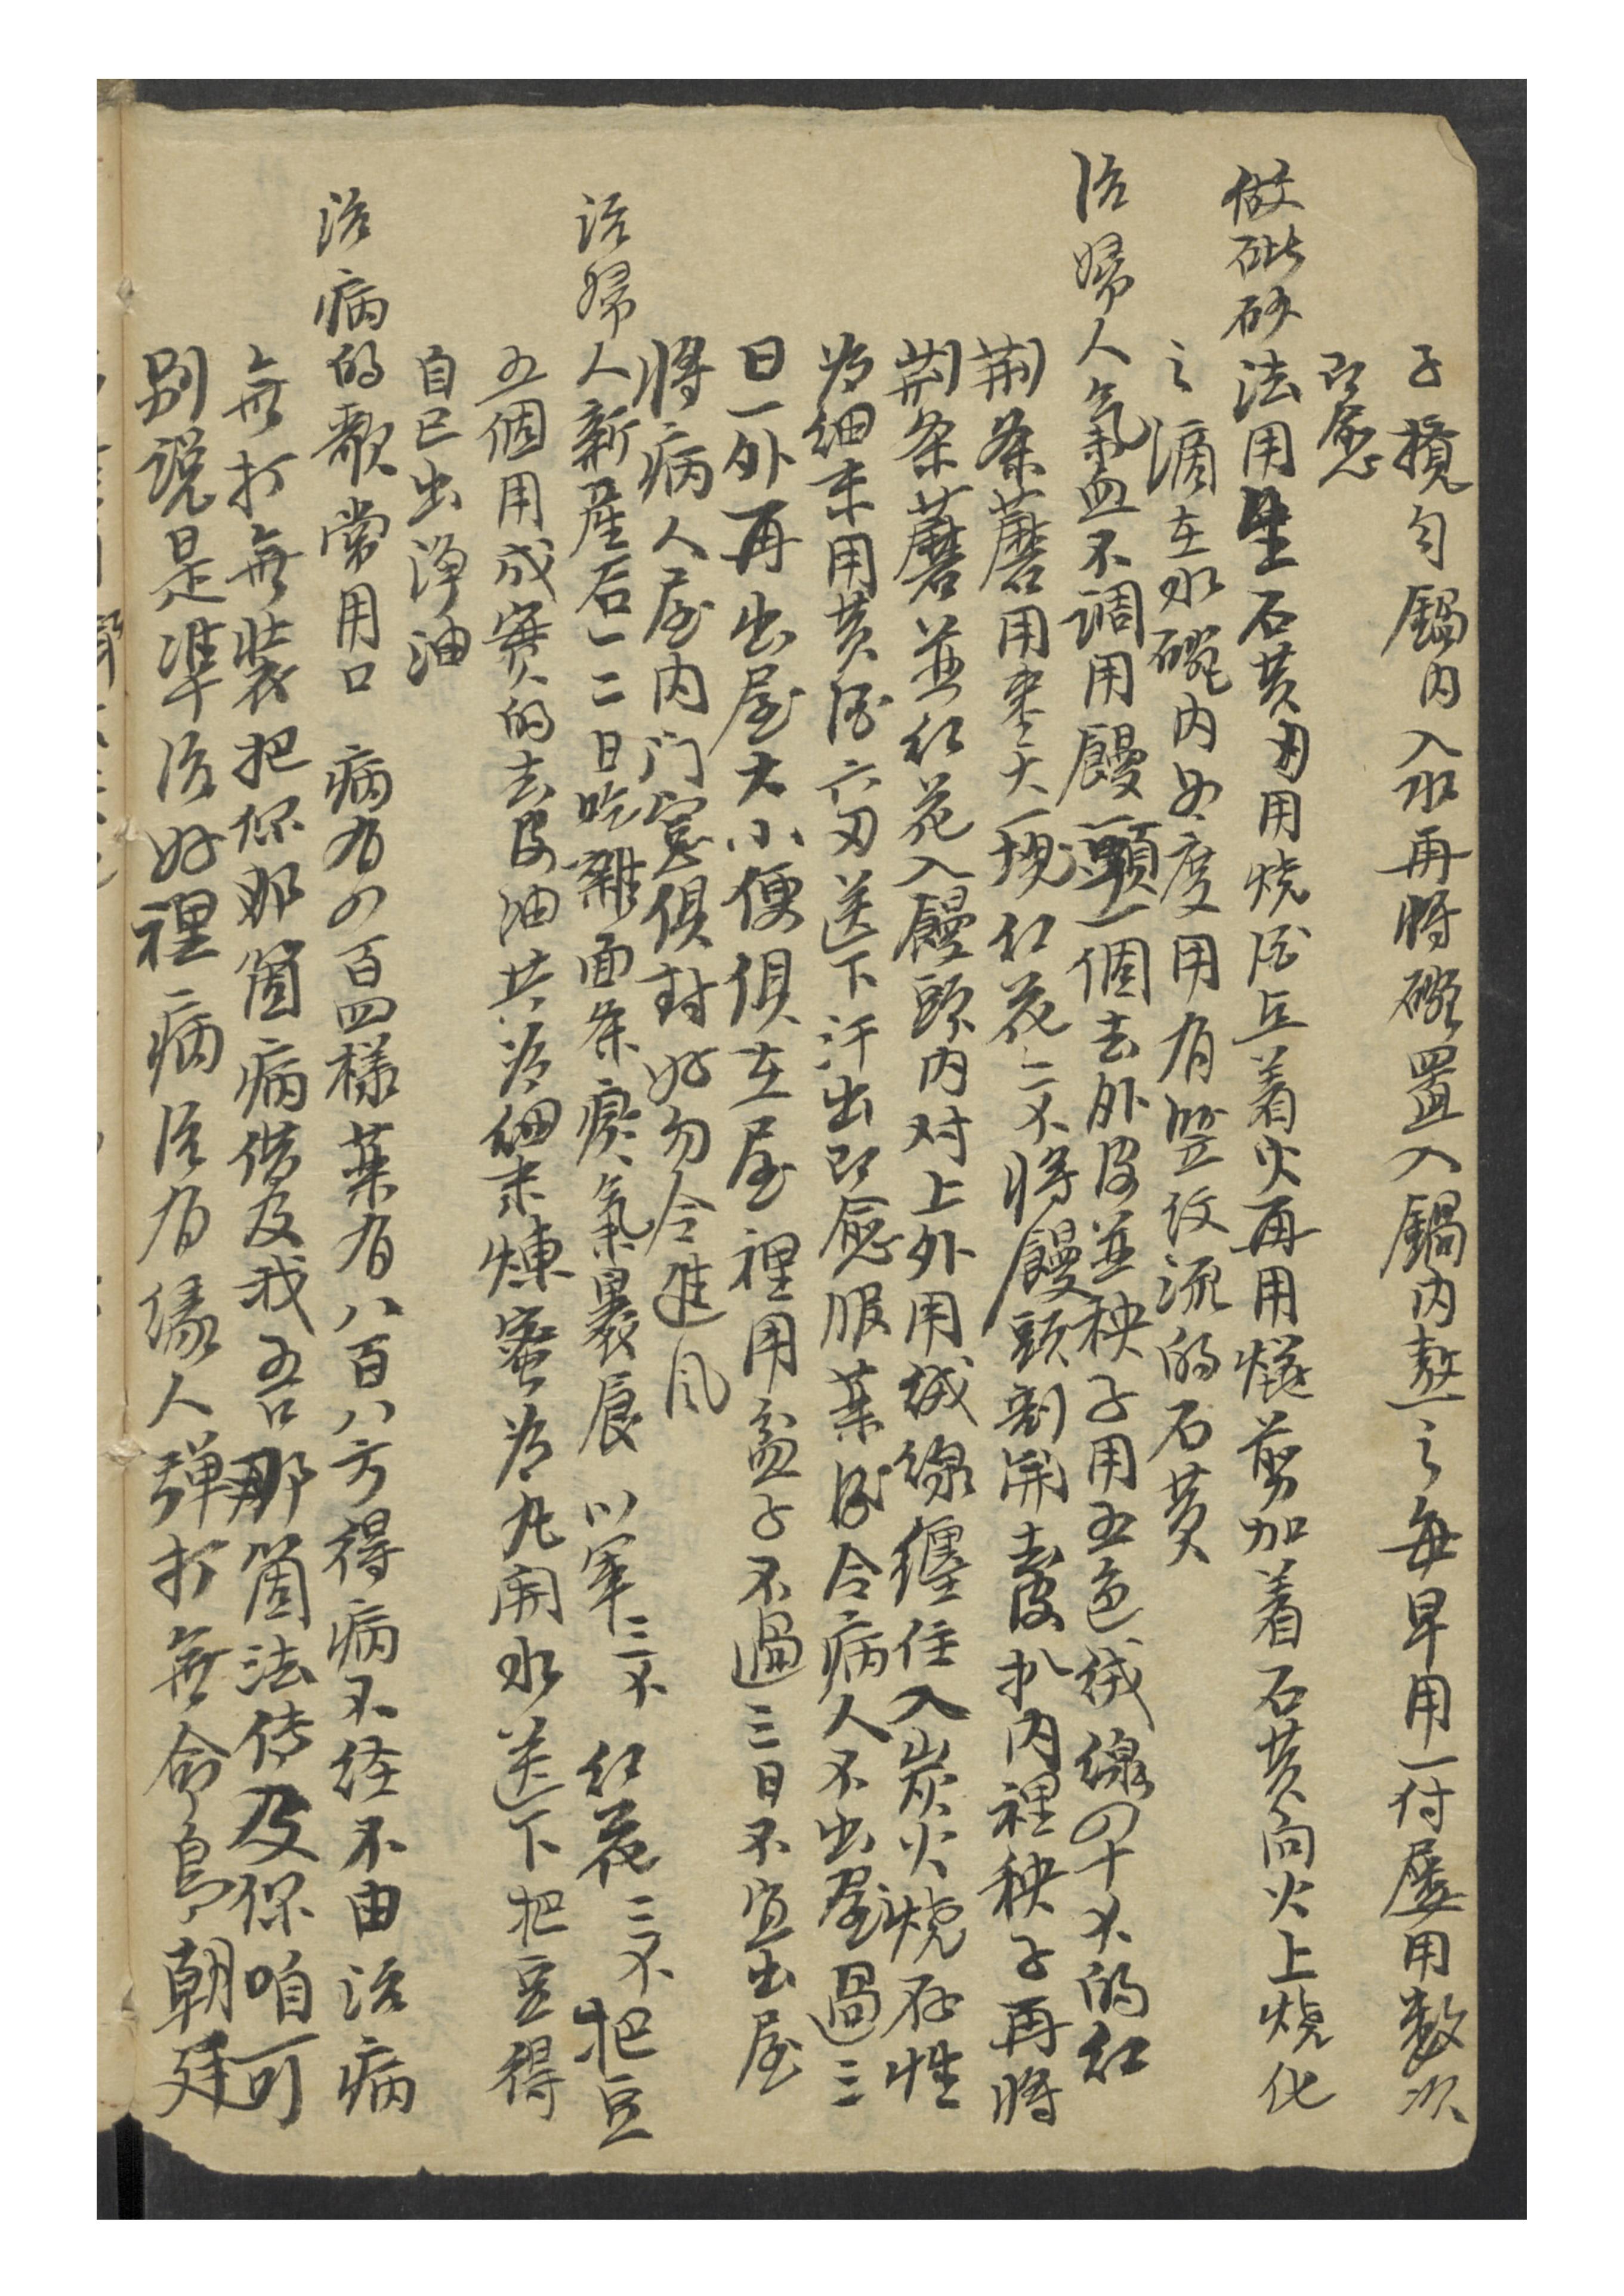 子攪勻鍋內入水再將碗置入鍋內熬之每早用一付屡用數次
即愈
做砒砂法用生石黄用烧酒点着火再用燧剪加着石黄向火上烧化
之滴在水碗内如度用有竖纹流的石黄
治婦人氣血不調用饅頭一個去外皮並秧子用五色绒線四十寸的红
荆条蘑用枣大一塊红花二不將饅頭割開去皮扒内裡秧子再將
荆条蘑並红花入饅頭内对上外用绒線纏住入炭火烧存性
为细末用黄酒六刃送下汗出即愈服葉後令病人不出屋過三
日一外再出屋大小便俱在屋裡用盆子不過三日不宜出屋
將病人屋内门窓俱封好勿令進风
治婦人新産后一二日吃雜面条瘀氣裹辰 川军三不 红花三不 把豆
五個用成实的去皮油共为细末煉蜜为丸開水送下把豆得
自己出净油
治病的歌常用口 病有四百四樣葉有八百八方得病不经不由治病
無打無裝把你那箇病借及我吾那箇法传及你咱可
别说是凖治好裡病治有缘人弹打無命鳥朝廷